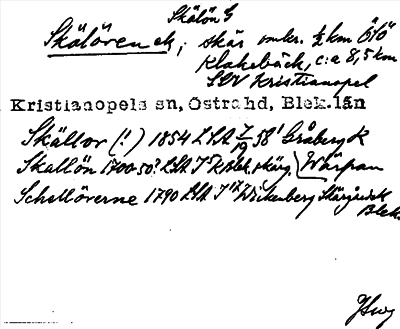 Skälön G
Skälören ek, skär omkr. ½ km ÖSÖ
Klakebäck, c:a 8,5 km
SSV Kristianopel
Kristianopels sn, Östrahd, Blek.län
Skällor (!) 1854 LSA 7/19 58' Gråberg K
Skallön 1700-50? LSA skärg. Wärpan
Schellöverne 1790 LSA Wikenberg Skärgård
Blek.